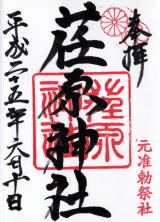 奉拝
元准勅祭社
荏原神社
荏原神社
平成二五年六月十日